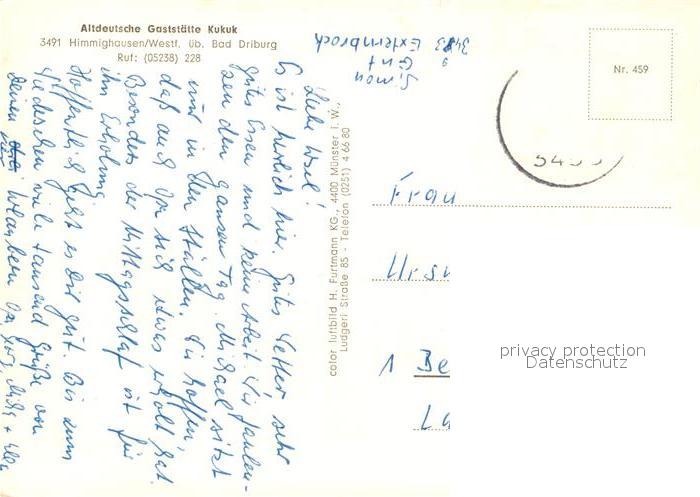 Altdeutsche Gaststätte Kukuk
3491 Himmighausen/Westf. üb. Bad Driburg
Ruf: (05238) 228
Simon
Gut
3483 Externbrock
Nr. 459
Liebe Ursel!
Es ist herrlich hier. Gutes Wetter, sehr
gutes Essen und keine Arbeit. Wir faulen-
zen den ganzen Tag. Michael sitzt
nur in den Ställen. Wir hoffen,
daß auch Opa sich etwas erholt hat.
Besonders der Mittagsschlaf ist für
ihn Erholung.
Hoffentlich geht es Dir gut. Bis zum
Wiedersehen viele tausend Grüße von
Deinen vier Urlaubern Opa,
color luftbild H. Furtmann KG., 4400 Münster i. W.,
Ludgeri Straße 85 - Telefon (0251) 4 66 80
Frau
Urs
1 Be
La
privacy protection
Datenschutz